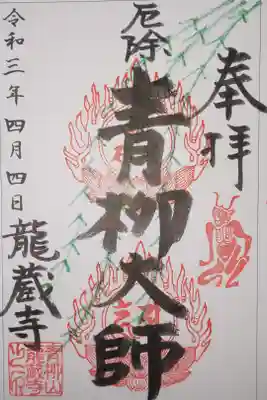 奉拝
厄除
青柳大師
令和三年四月四日
龍蔵寺
青柳山
龍蔵寺
之印